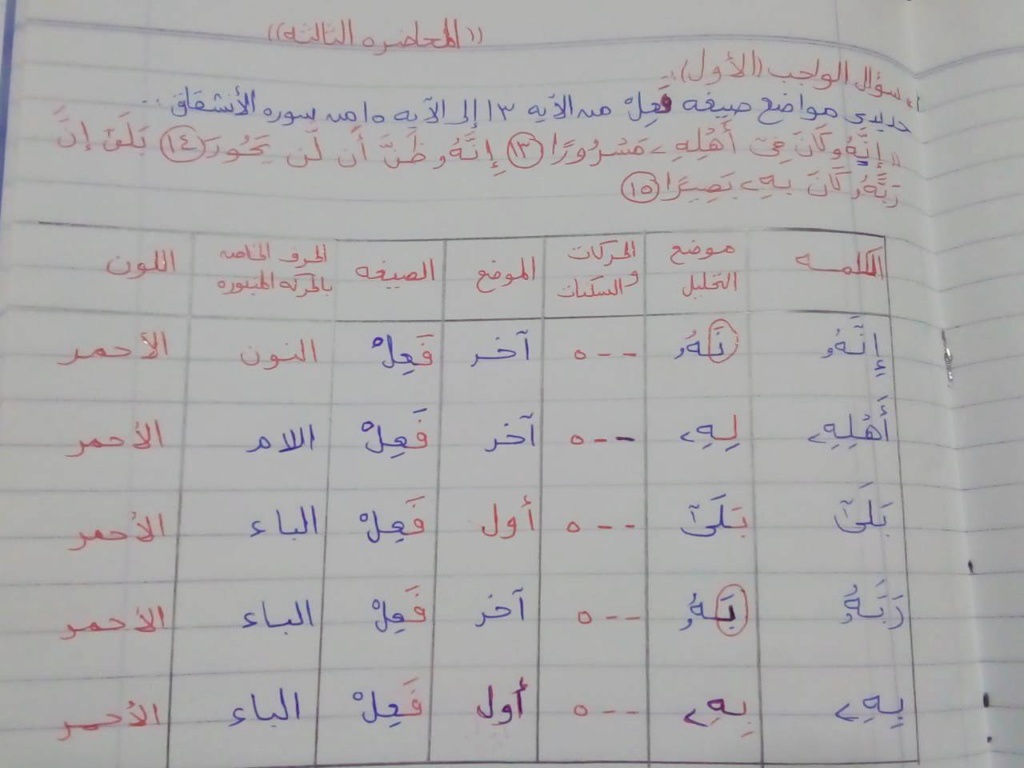 (( المحاضره الثالثه ))
١، سؤال الواجب (الأول) :
حددي مواضع صيغه فَعِلْ من الآيه ١٣ إلى الآيه ١٥ من سوره الأنشقاق ..
" إِنَّهُۥ كَانَ فِىٓ أَهْلِهِۦ مَسْرُورًا ١٣ إِنَّهُۥ ظَنَّ أَن لَّن يَحُورَ ١٤ بَلَىٰٓ إِنَّ
رَبَّهُۥ كَانَ بِهِۦ بَصِيرًا ١٥
الكلمـه | موضع التحليل | الحركات والسكنات | الموضع | الصيغه | الحرف الخاصه بالحركه المبتوره | اللون
إِنَّهُۥ | نَّهُۥ | --٥ | آخر | فَعِلْ | النون | الأحمر
أَهْلِهِۦ | لِهِۦ | --٥ | آخر | فَعِلْ | الام | الأحمر
بَلَىٰٓ | بَلَىٰٓ | --٥ | أول | فَعِلْ | الباء | الأحمر
رَبَّهُۥ | بَهُۥ | --٥ | آخر | فَعِلْ | الباء | الأحمر
بِهِۦ | بِهِۦ | --٥ | أول | فَعِلْ | الباء | الأحمر